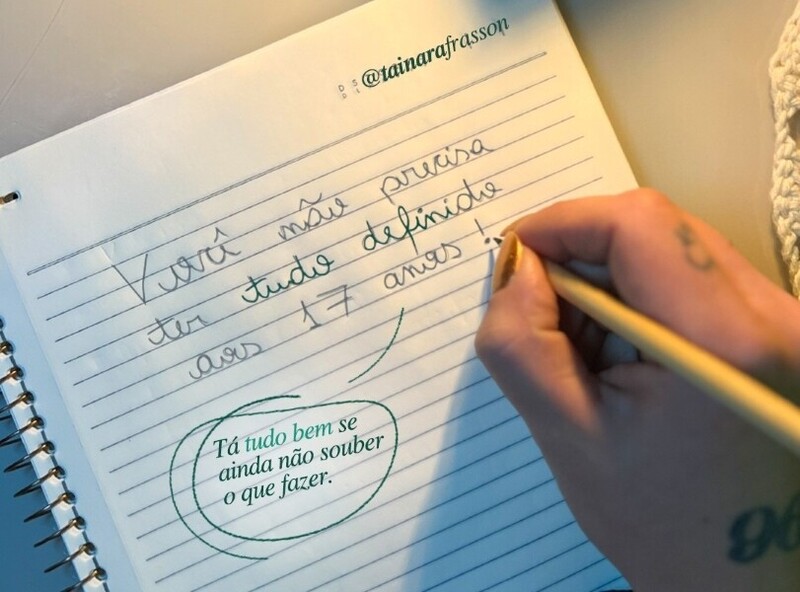 @tainarafrasson
Você não precisa
ter tudo definido
aos 17 anos!
Tá tudo bem se
ainda não souber
o que fazer.